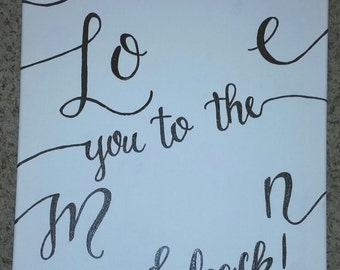 Lo e
you to the
M n
back!